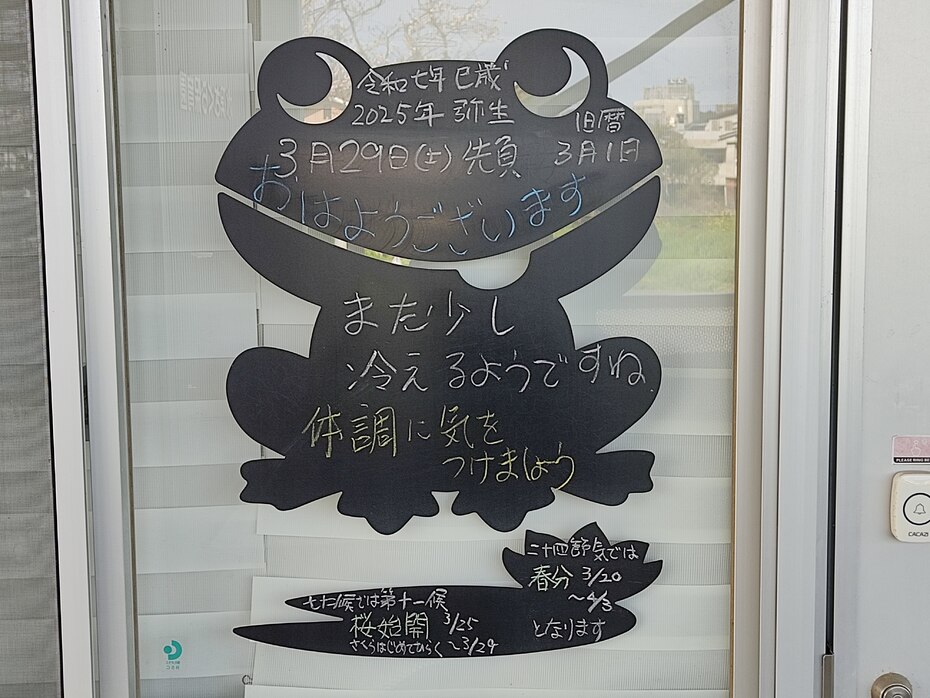 令和七年巳歳
2025年 弥生
旧暦
3月29日(土)先負 3月1日
おはようございます
また少し
冷えるようですね
体調に気を
つけましょう
二十四節気では
春分 3/20
～4/3
となります
七十二候では第十一候
桜始開 3/25
さくらはじめてひらく ～3/29
CACAZI